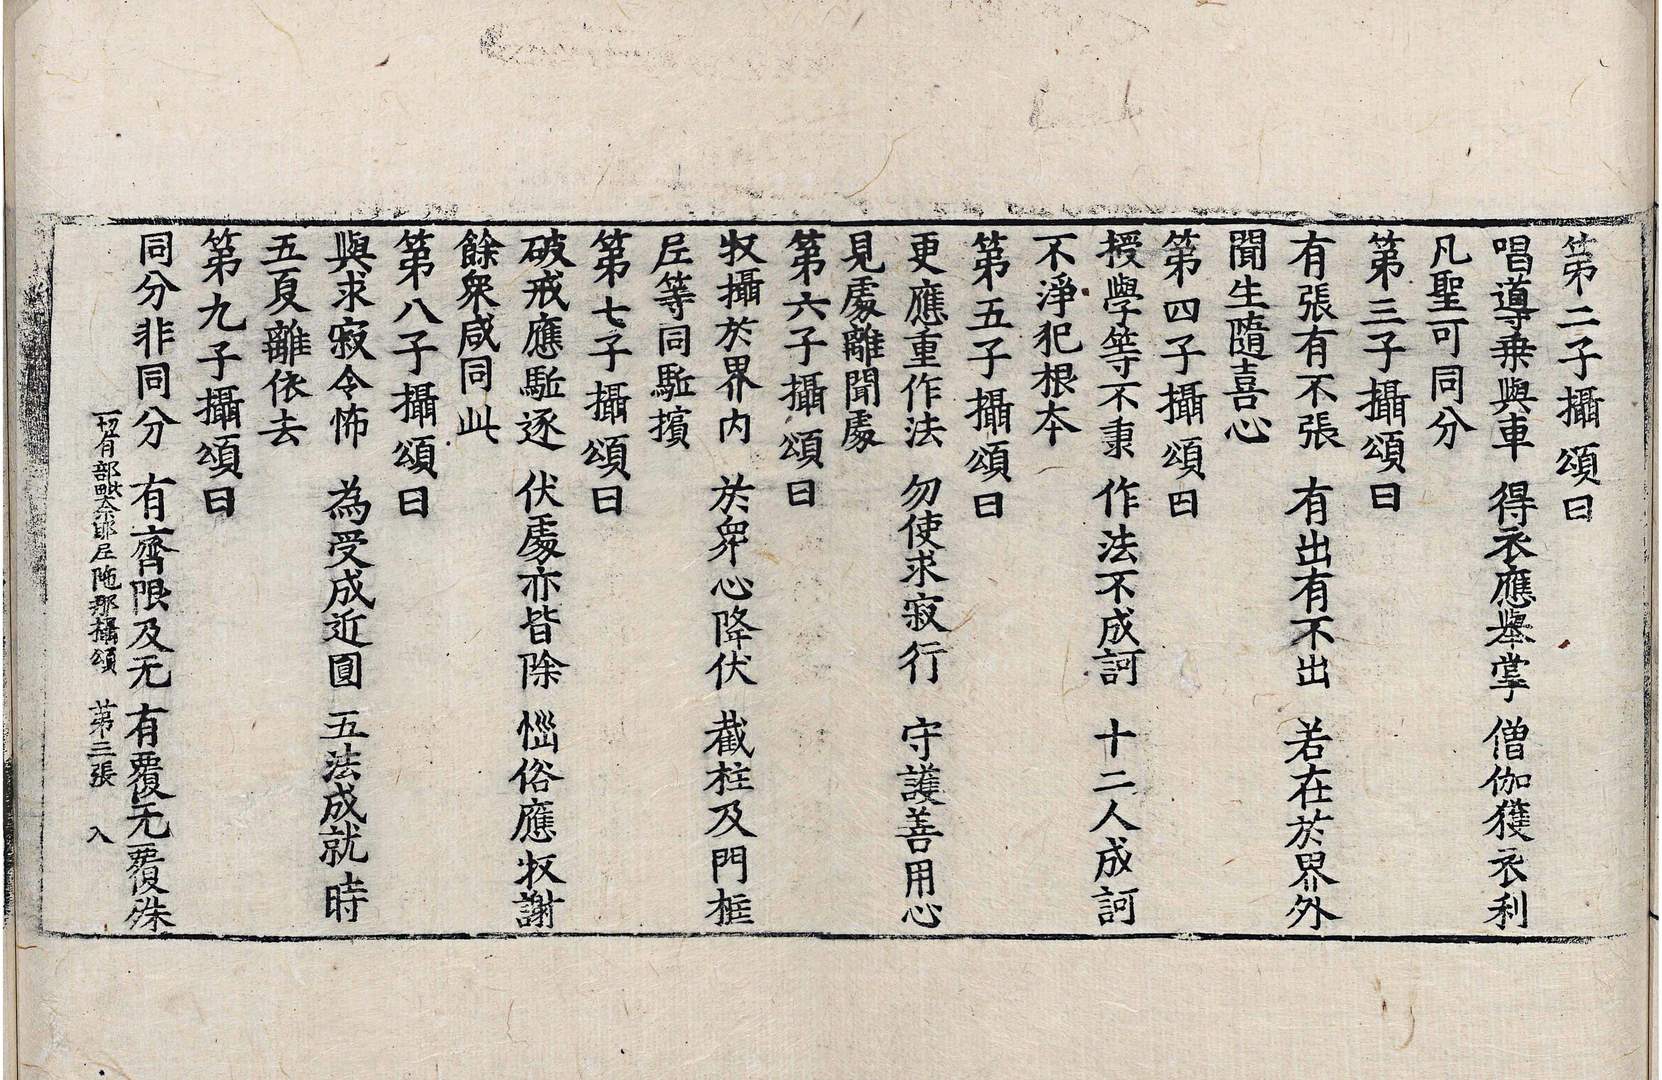 第二子攝頌曰
唱導乗與車 得衣應舉掌 僧伽獲衣利
凡聖可同分
第三子攝頌曰
有張有不張 有出有不出 若在於界外
聞生隨喜心
第四子攝頌曰
授學等不秉 作法不成訶 十二人成訶
不淨犯根本
第五子攝頌曰
更應重作法 勿使求寂行 守護善用心
見處離聞處
第六子攝頌曰
収攝於界内 於衆心降伏 截柱及門框
圧等同駈擯
第七子攝頌曰
破戒應駈逐 伏處亦皆除 惱俗應収謝
餘衆咸同此
第八子攝頌曰
與求寂令怖 為受成近圓 五法成就時
五夏離依去
第九子攝頌曰
同分非同分 有齊限及无 有覆无覆殊
一切有部毗奈耶尼陁那攝頌 第三張 入